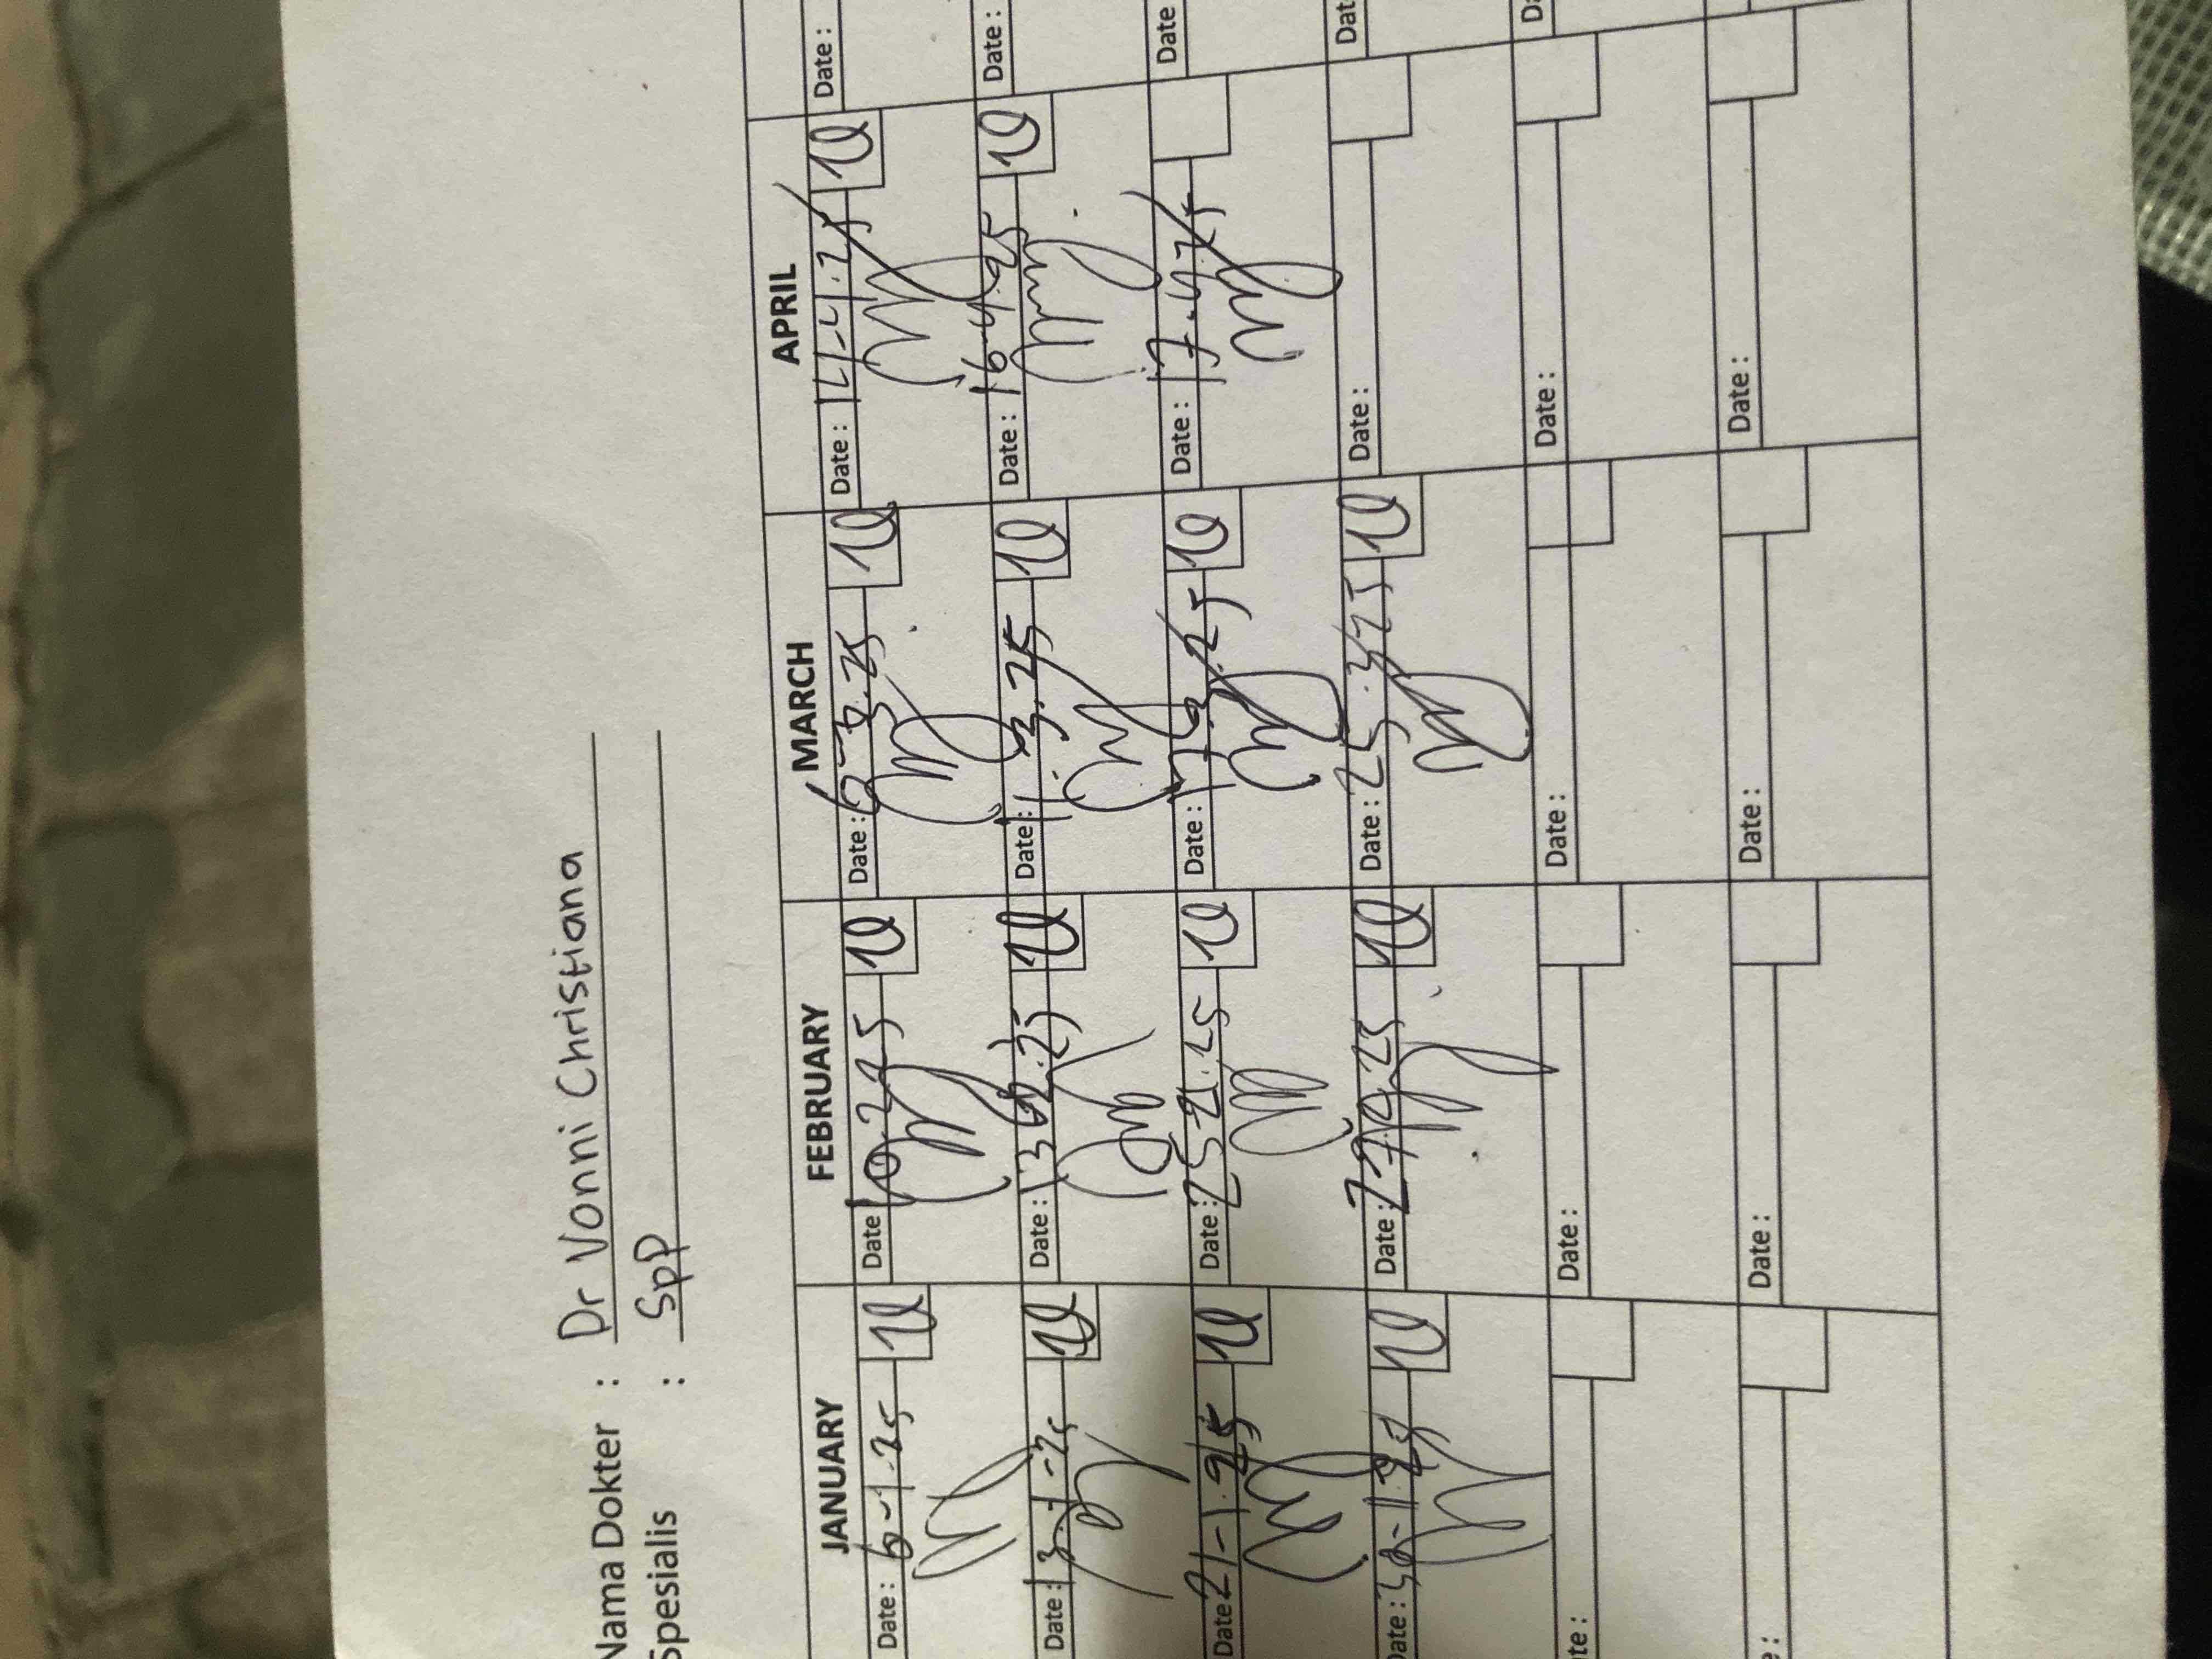 Nama Dokter : Dr Vonni Christiana
Spesialis : SpP
JANUARY FEBRUARY MARCH APRIL
Date : 6-1-25 10 Date 10.2.25 10 Date : 6-3.25 10 Date : 14-4.25 10 Date :
Date : 13-1-25 10 Date : 13 2.25 10 Date : 11.3.25 10 Date : 16.4.25 10 Date :
Date 21-1.25 10 Date : 25.2.25 10 Date : 17.3.25 10 Date : 17.4.25 Date
Date : 30-1.25 10 Date : 27.2.25 10 Date : 25.3.25 10 Date : Dat
te : Date : Date : Date : Da
e : Date : Date : Date :